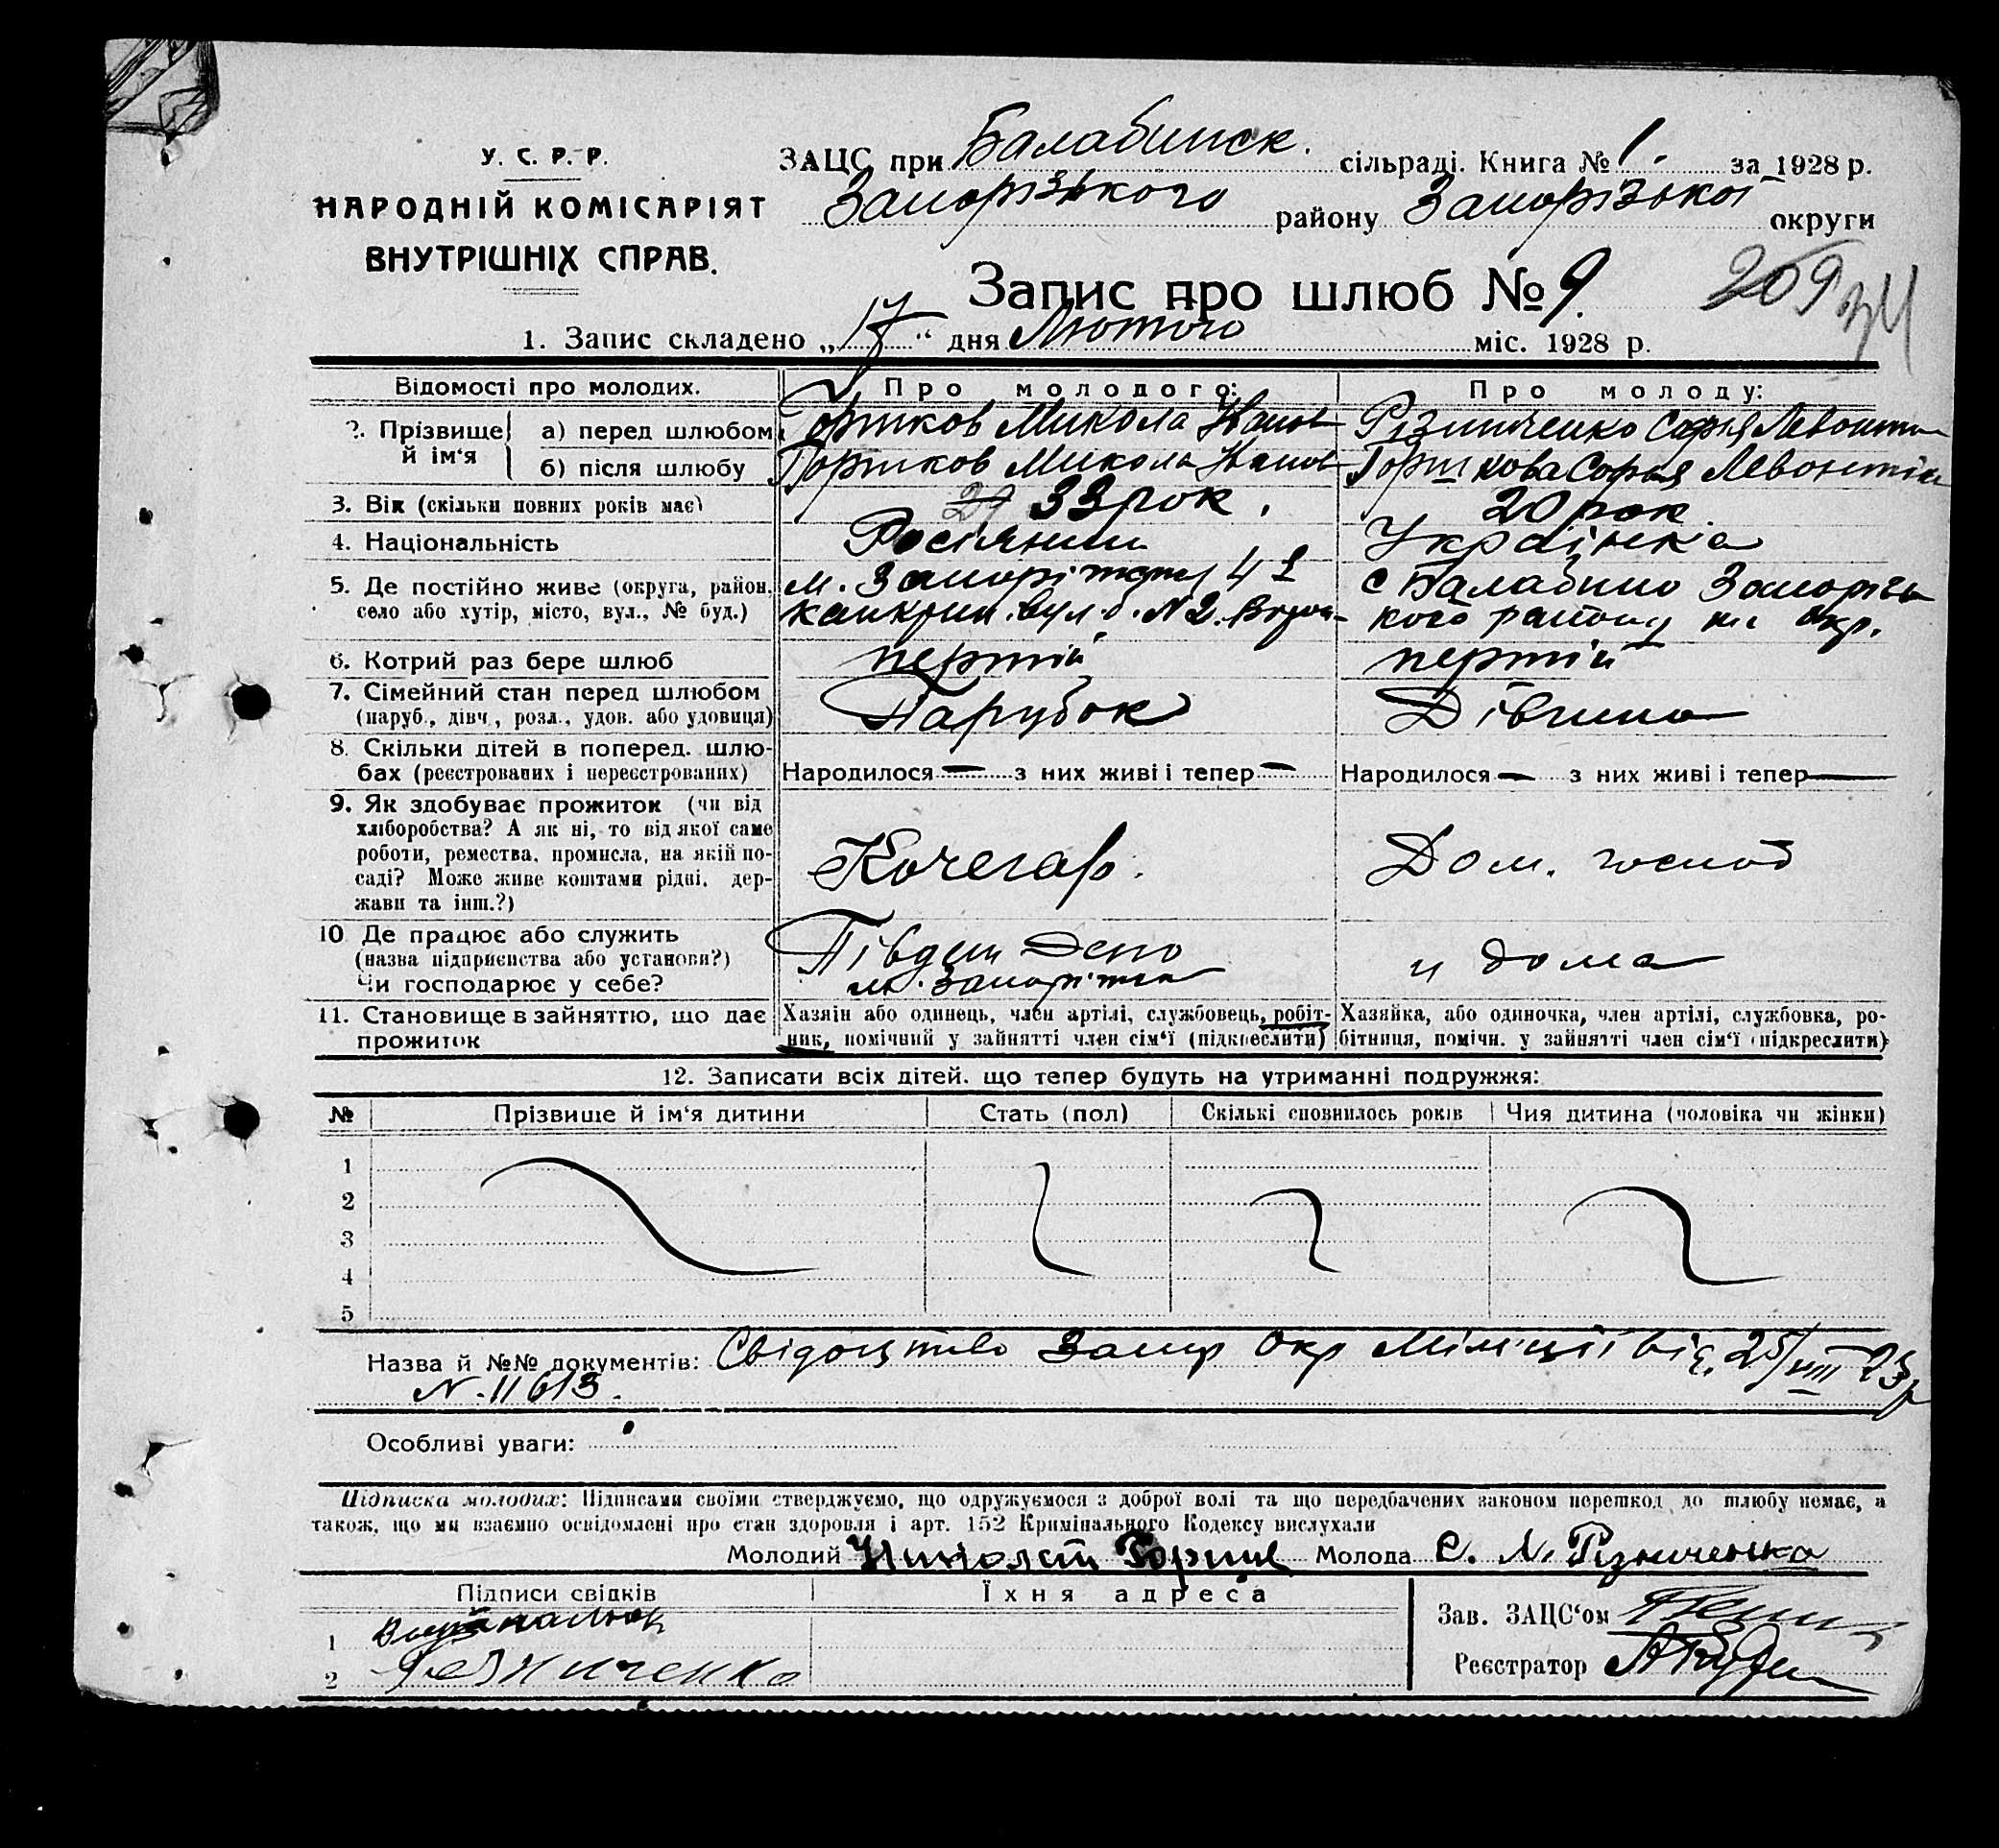 У. С. Р. Р.
НАРОДНІЙ КОМІСАРІЯТ
ВНУТРІШНІХ СПРАВ.
ЗАЦС при Балабинск. сільраді. Книга № 1. за 1928 р.
Запорізького району Запорізької округи
Запис про шлюб № 9.
209
1. Запис складено „17“ дня Лютого міс. 1928 р.
Відомості про молодих. Про молодого: Про молоду:
2. Прізвище й ім'я
а) перед шлюбом Горшков Микола Іванов Різниченко Софія Левонтіи
б) після шлюбу Горшков Микола Іванов Горшкова Софія Левонтіи
3. Вік (скільки повних років має) 29 33 рок. 20 рок.
4. Національність Росіянин Українка
5. Де постійно живе (округа, район, м. Запоріжжя с Балабино Запорізь
село або хутір, місто, вул., № буд.) вул. б. № 2. кого району окр.
6. Котрий раз бере шлюб перший перший
7. Сімейний стан перед шлюбом Парубок Дівчина
(паруб., дівч., розл., удов. або удовиця)
8. Скільки дітей в поперед. шлю-
бах (реєстрованих і нереєстрованих) Народилося — з них живі і тепер — Народилося — з них живі і тепер —
9. Як здобуває прожиток (чи від
хліборобства? А як ні, то від якої саме
роботи, ремества, промисла, на якій по- Кочегар. Дом. господ
саді? Може живе коштами рідні, дер-
жави та інш.?)
10 Де працює або служить Півден Депо
(назва підприєнства або установи?) м. Запоріжжя дома
Чи господарює у себе?
11. Становище в зайняттю, що дає Хазяін або одинець, член артілі, службовець, робіт- Хазяйка, або одиночка, член артілі, службовка, ро-
прожиток ник, помічний у зайнятті член сім'ї (підкреслити) бітниця, помічн. у зайнятті член сім'ї (підкреслити)
12. Записати всіх дітей, що тепер будуть на утриманні подружжя:
№ Прізвище й ім'я дитини Стать (пол) Скількі сповнилось років Чия дитина (чоловіка чи жінки)
1
2
3
4
5
Назва й №№ документів: Свідоцтво Запор Окр Міліції від 25/VIII 23р
N. 11613.
Особливі уваги:
Підписка молодих: Підписами своїми стверджуємо, що одружуємося з доброї волі та що передбачених законом перешкод до шлюбу немає, а
також, що ми взаємно освідомлені про стан здоровля і арт. 152 Кримінального Кодексу вислухали
Молодий Молода С. Л. Різниченко
Підписи свідків Їхня адреса
Зав. ЗАЦС'ом
1
2 Резниченко
Реєстратор